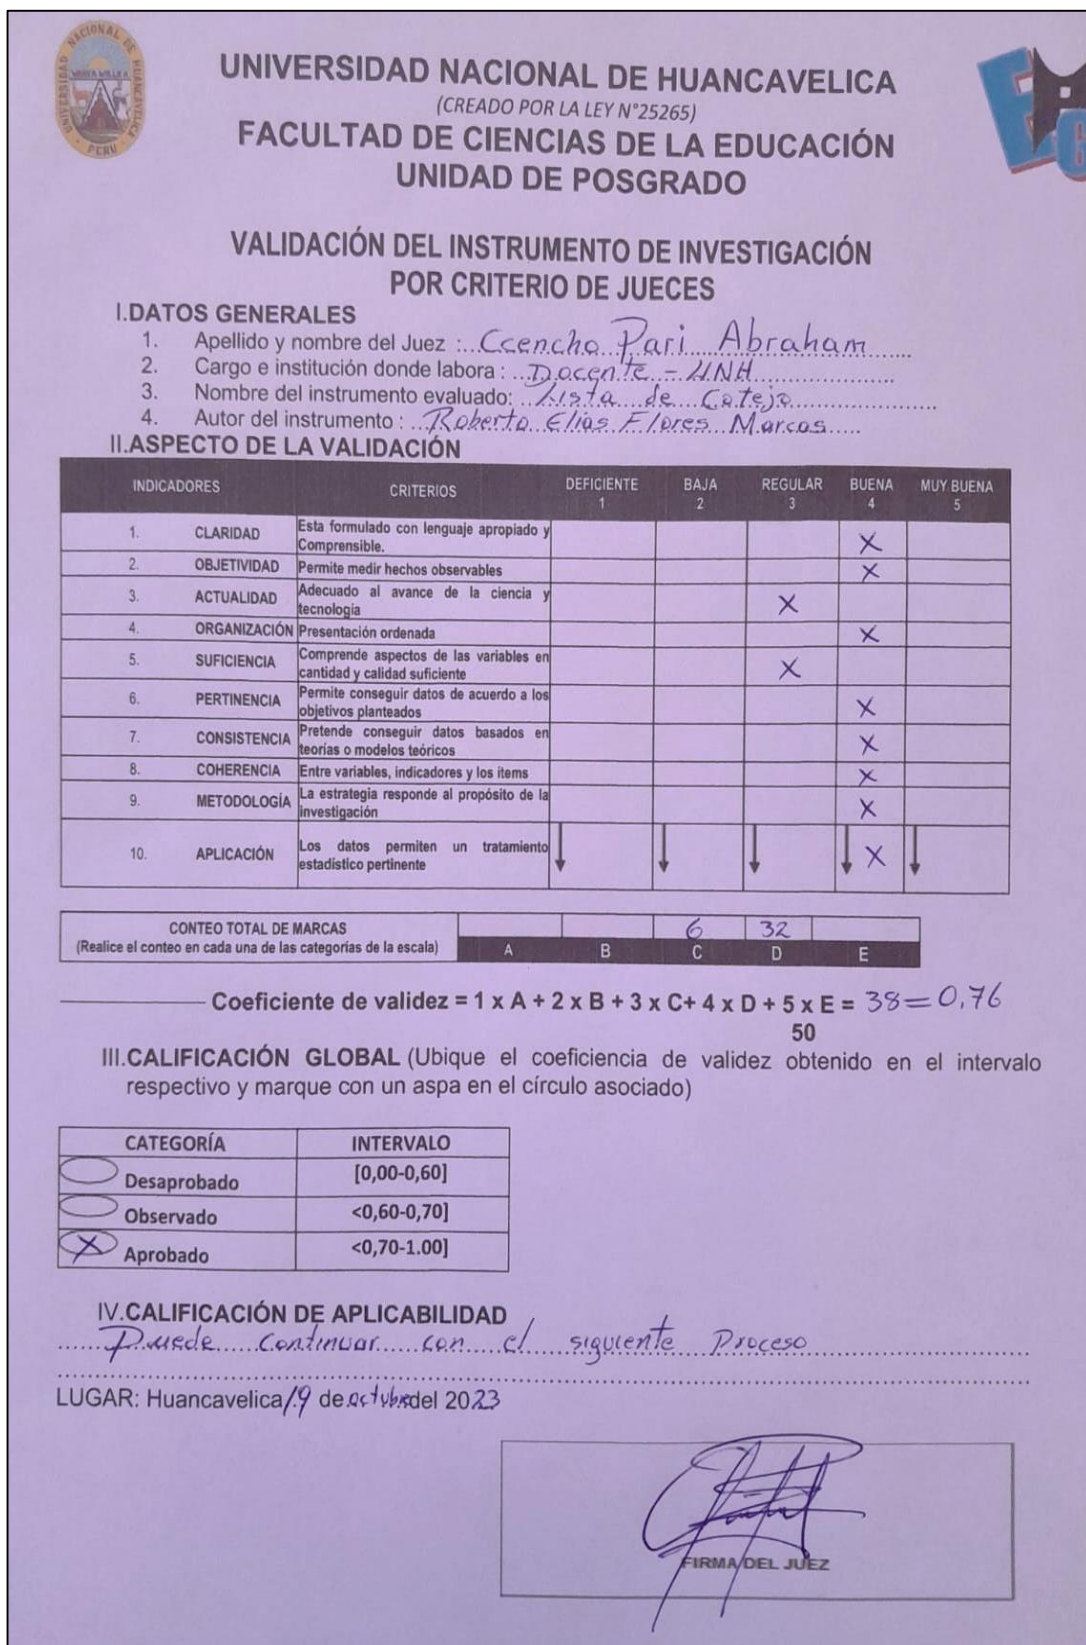 UNIVERSIDAD NACIONAL DE HUANCAVELICA
PERU
UNIVERSIDAD NACIONAL DE HUANCAVELICA
(CREADO POR LA LEY N°25265)
FACULTAD DE CIENCIAS DE LA EDUCACIÓN
UNIDAD DE POSGRADO
VALIDACIÓN DEL INSTRUMENTO DE INVESTIGACIÓN
POR CRITERIO DE JUECES
I.DATOS GENERALES
1. Apellido y nombre del Juez : Ccencho Pari Abraham
2. Cargo e institución donde labora : Docente - UNH
3. Nombre del instrumento evaluado: Lista de Cotejo
4. Autor del instrumento : Roberto Elias Flores Marcas
II.ASPECTO DE LA VALIDACIÓN
INDICADORES CRITERIOS DEFICIENTE 1 BAJA 2 REGULAR 3 BUENA 4 MUY BUENA 5
1. CLARIDAD Esta formulado con lenguaje apropiado y
Comprensible. X
2. OBJETIVIDAD Permite medir hechos observables X
3. ACTUALIDAD Adecuado al avance de la ciencia y
tecnología X
4. ORGANIZACIÓN Presentación ordenada X
5. SUFICIENCIA Comprende aspectos de las variables en
cantidad y calidad suficiente X
6. PERTINENCIA Permite conseguir datos de acuerdo a los
objetivos planteados X
7. CONSISTENCIA Pretende conseguir datos basados en
teorías o modelos teóricos X
8. COHERENCIA Entre variables, indicadores y los items X
9. METODOLOGÍA La estrategia responde al propósito de la
investigación X
10. APLICACIÓN Los datos permiten un tratamiento
estadístico pertinente X
CONTEO TOTAL DE MARCAS 6 32
(Realice el conteo en cada una de las categorías de la escala) A B C D E
Coeficiente de validez = 1 x A + 2 x B + 3 x C+ 4 x D + 5 x E = 38 = 0,76
50
III.CALIFICACIÓN GLOBAL (Ubique el coeficiencia de validez obtenido en el intervalo
respectivo y marque con un aspa en el círculo asociado)
CATEGORÍA INTERVALO
Desaprobado [0,00-0,60]
Observado <0,60-0,70]
X Aprobado <0,70-1.00]
IV.CALIFICACIÓN DE APLICABILIDAD
Puede Continuar con el siguiente Proceso
LUGAR: Huancavelica 19 de octubre del 2023
FIRMA DEL JUEZ